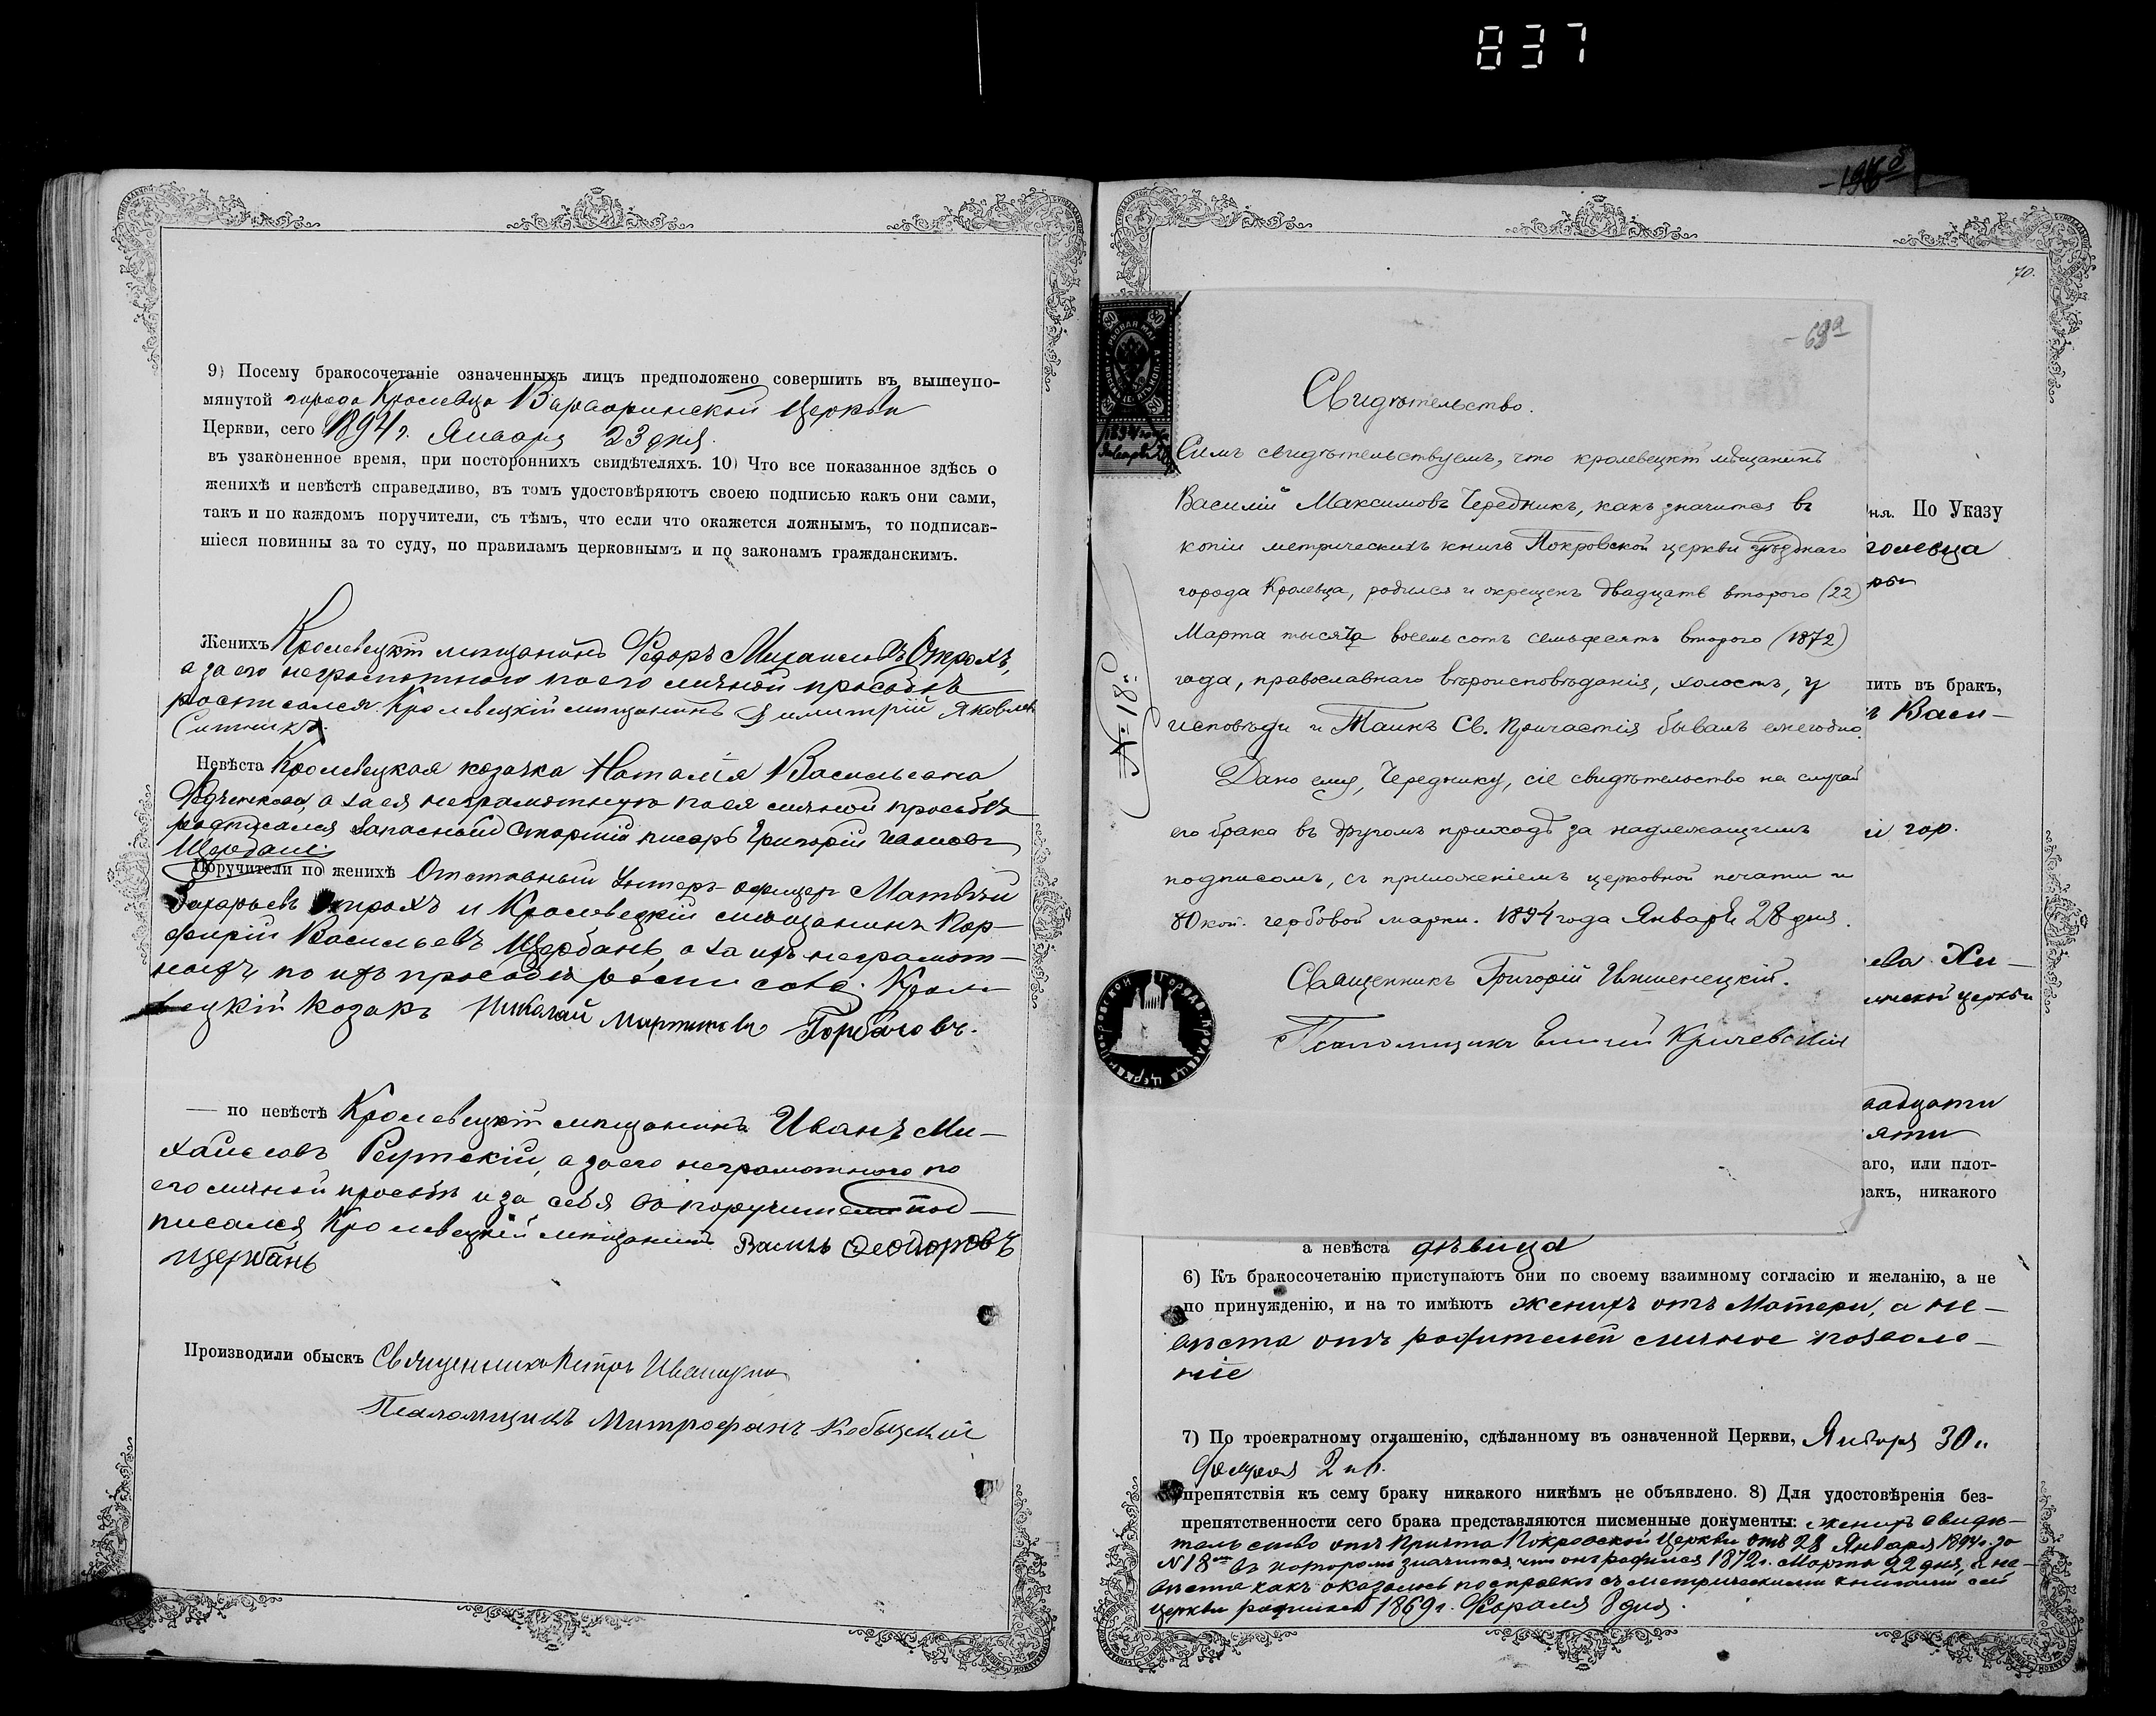 837
9) Посему бракосочетаніе означенныхъ лицъ предположено совершить въ вышеупо-
мянутой города Кролевца Варваринской Церкви
Церкви, сего 1894 г. Января 23 дня.
въ узаконенное время, при постороннихъ свидѣтеляхъ. 10) Что все показанное здѣсь о
женихѣ и невѣстѣ справедливо, въ томъ удостовѣряютъ своею подписью какъ они сами,
такъ и по каждомъ поручители, съ тѣмъ, что если что окажется ложнымъ, то подписав-
шіеся повинны за то суду, по правиламъ церковнымъ и по законамъ гражданскимъ.
Женихъ Кролевецкій мѣщанинъ Федоръ Михаиловъ Отрохъ,
а за его неграмотного по его личной просьбѣ
росписался Кролевецкій мѣщанинъ Димитрій Яковлев
Ситникъ.
Невѣста Кролевецкая козачка Наталія Васильева
а за ея неграмотную по ея личной просьбѣ
росписался Запасный Старшій писарь Григорій
Щербань.
Поручители по женихѣ Отставный Унтеръ-офицер Матвѣй
Захарьевъ Отрохъ и Кролевецкій мѣщанинъ Пор-
фирій Васильевъ Щербань, а за ихъ неграмот-
ныхъ, по ихъ просьбѣ Кроле-
вецкій козакъ Николай Мартиновъ Горбачовъ.
— по невѣстѣ Кролевецкій мѣщанинъ Иванъ Ми-
хаиловъ Реутскій, а за его неграмотного по
его личной просьбѣ и за себя поручителемъ под-
писался Кролевецкій мѣщанинъ Федоровъ
Щербань
Производили обыскъ Священникъ Петръ
Псаломщикъ Митрофанъ Кобыщскій
70.
-69а
Свидѣтельство.
Симъ свидѣтельствуемъ, что кролевецкій мѣщанинъ
Василій Максимовъ Чередникъ, какъ значится въ
копіи метрическихъ книгъ Покровской церкви уѣзднаго
города Кролевца, родился и окрещенъ двадцать второго (22)
Марта тысяча восемьсотъ семьдесятъ второго (1872)
года, православнаго вѣроисповѣданія, холостъ, у
исповѣди и Таинъ Св. Причастія бывалъ ежегодно.
Дано ему, Череднику, сіе свидѣтельство на случай
его брака въ другомъ приходѣ за надлежащимъ
подписомъ, съ приложеніемъ церковной печати и
80 кой. гербовой марки. 1894 года Январѣ 28 дня.
Священникъ Григорій
Псаломщикъ Кричевскій
№ 18й
ня. По Указу
ролевца
ить въ бракъ,
ъ Васи-
й гор.
ева Хи-
инской церкви
вадцати
яти
аго, или плот-
ракъ, никакого
а невѣста дѣвица
6) Къ бракосочетанію приступаютъ они по своему взаимному согласію и желанію, а не
по принужденію, и на то имѣютъ женихъ отъ Матери, а не-
вѣста отъ родителей личное позволе-
ніе
7) По троекратному оглашенію, сдѣланному въ означенной Церкви, Января 30 и
Февраля 2 и 6.
препятствія къ сему браку никакого никѣмъ не объявлено. 8) Для удостовѣренія без-
препятственности сего брака представляются писменные документы: женихъ свидѣ-
тельство отъ Причта Покровской Церкви отъ 28 Января 1894 г. за
№ 18 въ которомъ значится, что онъ родился 1872 г. Марта 22 дня, а не-
вѣста какъ оказалось по справкѣ съ метрическими книгами сей
церкви родилась 1869 г. Февраля 8 дня.